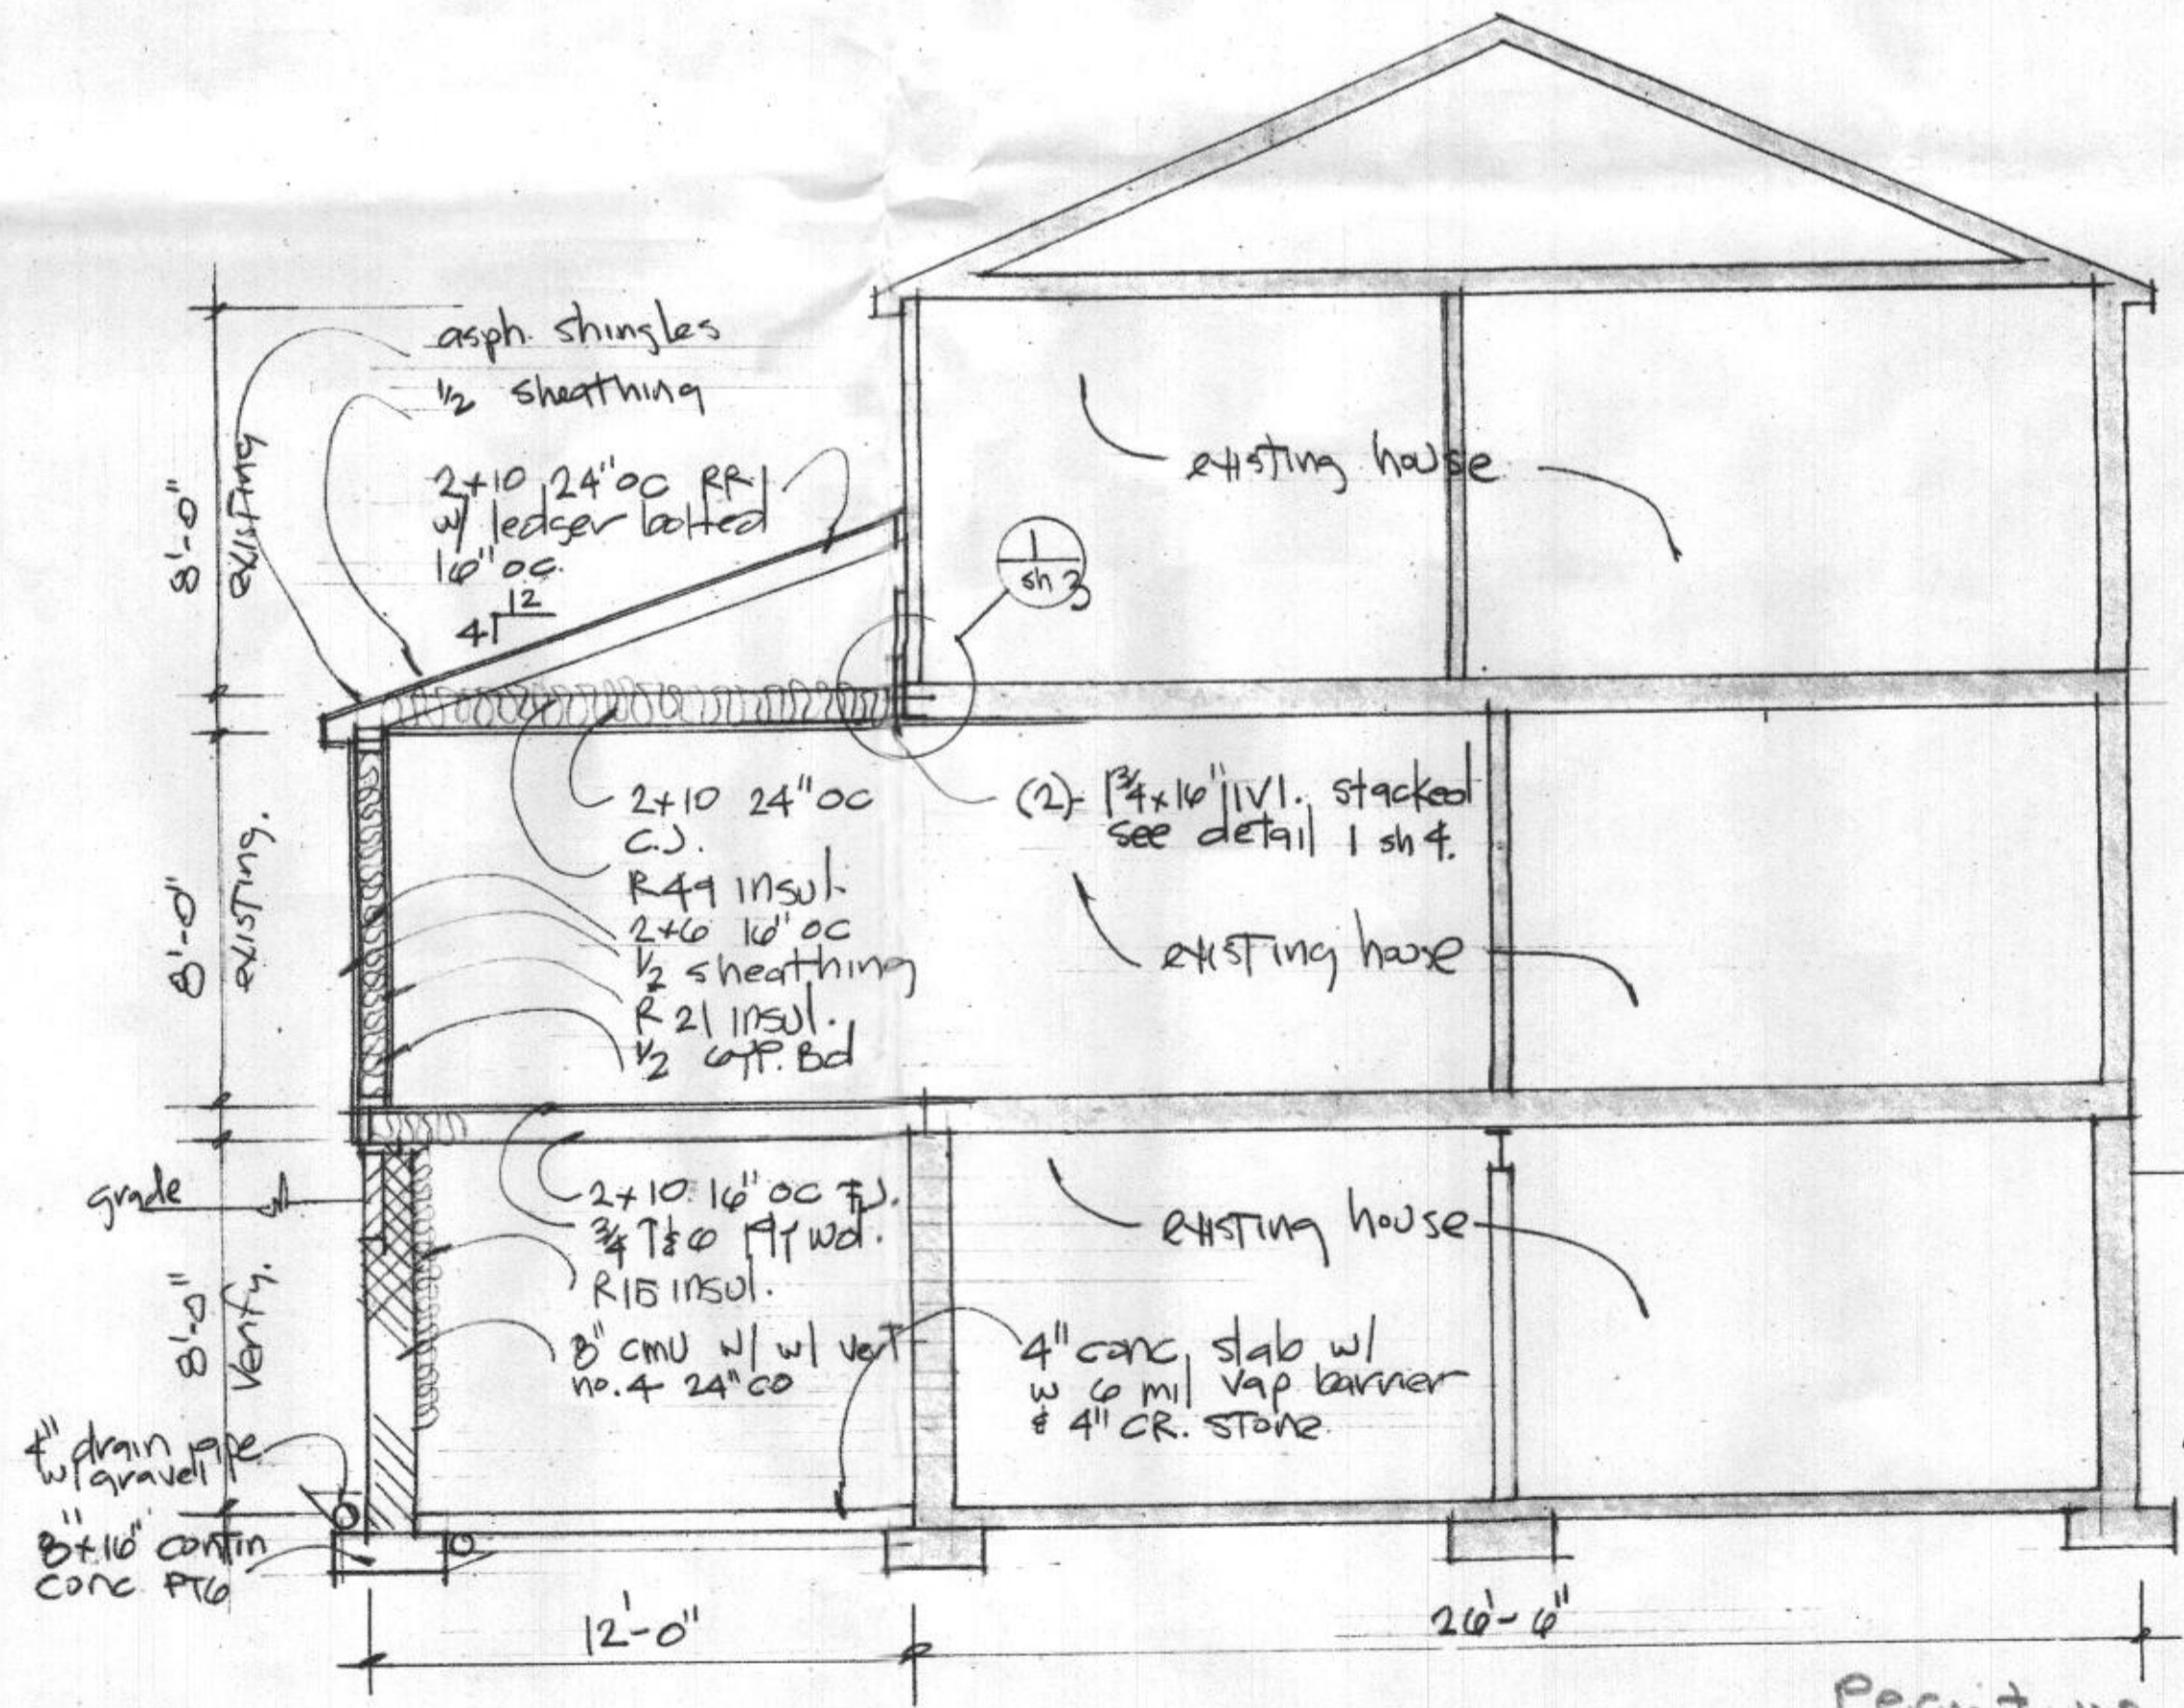 asph. shingles
1/2 sheathing
2x10 24" oc RR
w/ ledger bolted
16" oc.
12
4
8'-0"
existing
1
sh 3
existing house
2x10 24" oc
C.J.
R49 insul.
2x6 16" oc
1/2 sheathing
R 21 insul.
1/2 gyp. Bd
(2)- 1 3/4 x 16" lvl. stacked
see detail 1 sh 4.
8'-0"
existing.
existing house
grade
2x10 16" oc F.J.
3/4 T&G Plywd.
R15 insul.
8" cmu w/ w/ vert
no. 4 24" co
existing house
4" conc. slab w/
w 6 mil vap barrier
& 4" CR. stone
8'-0"
verify.
4" drain pipe
w/ gravel
8" x 16" contin
conc FTG
12'-0"
26'-6"
Permit